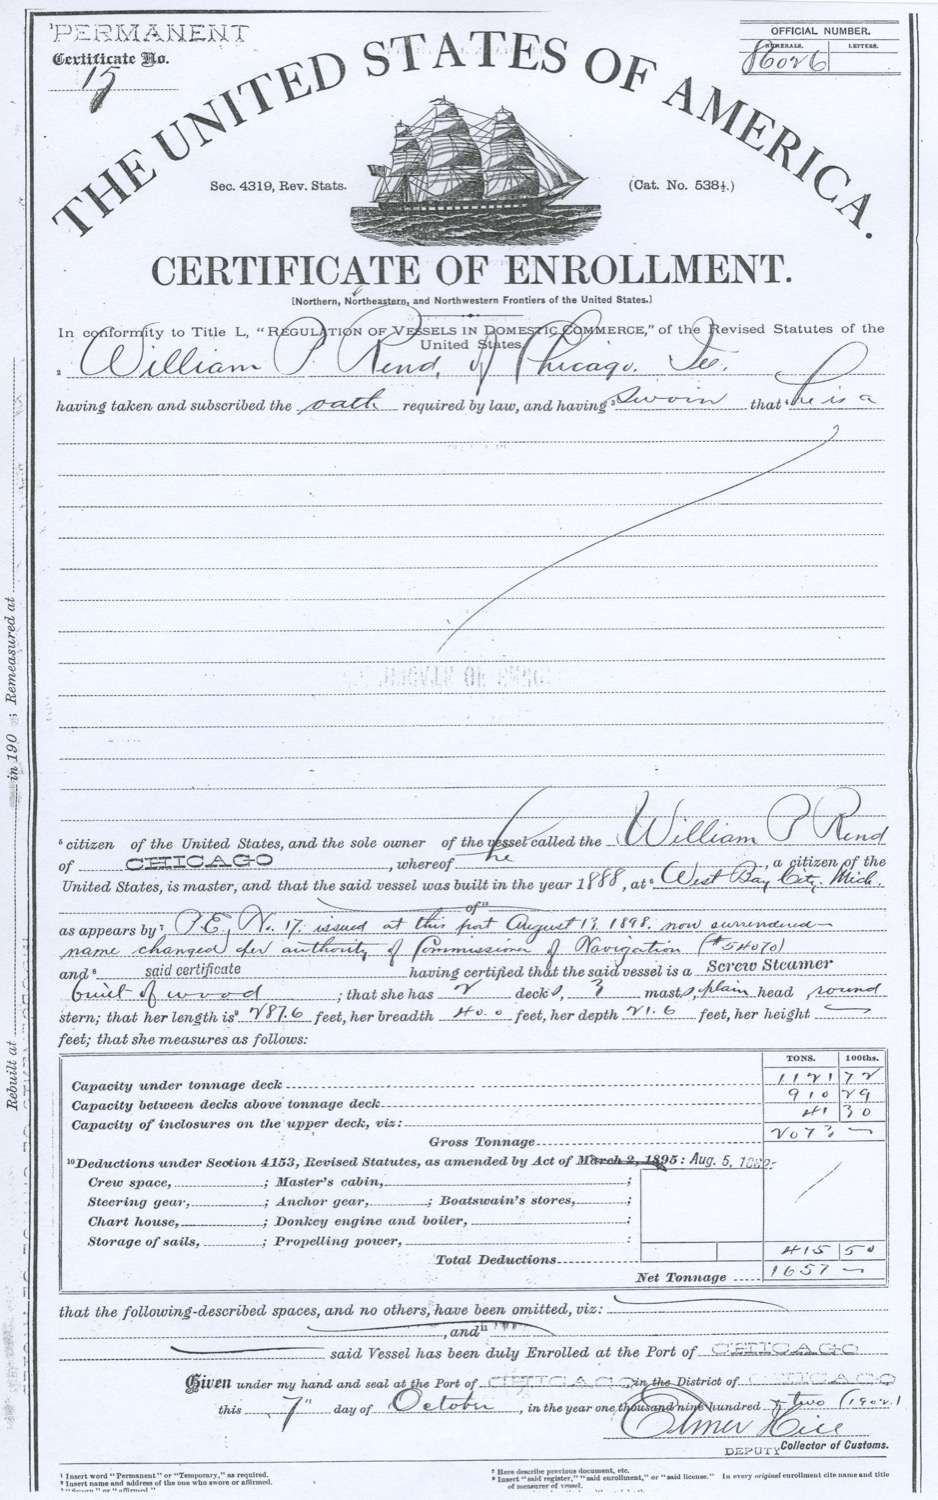 PERMANENT
Certificate No.
15
OFFICIAL NUMBER.
NUMERALS. LETTERS.
86026
THE UNITED STATES OF AMERICA.
Sec. 4319, Rev. Stats.
(Cat. No. 538½.)
CERTIFICATE OF ENROLLMENT.
[Northern, Northeastern, and Northwestern Frontiers of the United States.]
In conformity to Title L, "REGULATION OF VESSELS IN DOMESTIC COMMERCE," of the Revised Statutes of the
United States,
2 William P Rend, of Chicago. Ill.
having taken and subscribed the oath required by law, and having 3 sworn that 4 he is a
5 citizen of the United States, and the sole owner of the vessel called the William P Rend
of CHICAGO, whereof he, a citizen of the
United States, is master, and that the said vessel was built in the year 1888, at 6 West Bay City. Mich.
of
as appears by 7 P.E. No. 17. issued at this port August 13. 1898. now surrendered
name changed per authority of Commission of Navigation (#54070)
and 8 said certificate having certified that the said vessel is a Screw Steamer
built of wood; that she has 2 decks, 3 masts, plain head round
stern; that her length is 9 287.6 feet, her breadth 40.0 feet, her depth 21.6 feet, her height
feet; that she measures as follows:
TONS. 100ths.
Capacity under tonnage deck 1121 72
Capacity between decks above tonnage deck 910 29
Capacity of inclosures on the upper deck, viz: 41 30
Gross Tonnage 2073
10 Deductions under Section 4153, Revised Statutes, as amended by Act of March 2, 1895: Aug. 5, 1882:
Crew space, ; Master's cabin, ;
Steering gear, ; Anchor gear, ; Boatswain's stores, ;
Chart house, ; Donkey engine and boiler, ;
Storage of sails, ; Propelling power, :
Total Deductions 415 50
Net Tonnage 1657
that the following-described spaces, and no others, have been omitted, viz:
, and 11
said Vessel has been duly Enrolled at the Port of CHICAGO
Given under my hand and seal at the Port of CHICAGO in the District of CHICAGO
this 7" day of October, in the year one thousand nine hundred & two (1902)
Elmer Hill
DEPUTY Collector of Customs.
1 Insert word "Permanent" or "Temporary," as required.
2 Insert name and address of the one who swore or affirmed.
3 "Sworn" or "affirmed."
7 Here describe previous document, etc.
8 Insert "said register," "said enrollment," or "said license." In every original enrollment cite name and title
of measurer of vessel.
Rebuilt at in 190 ; Remeasured at